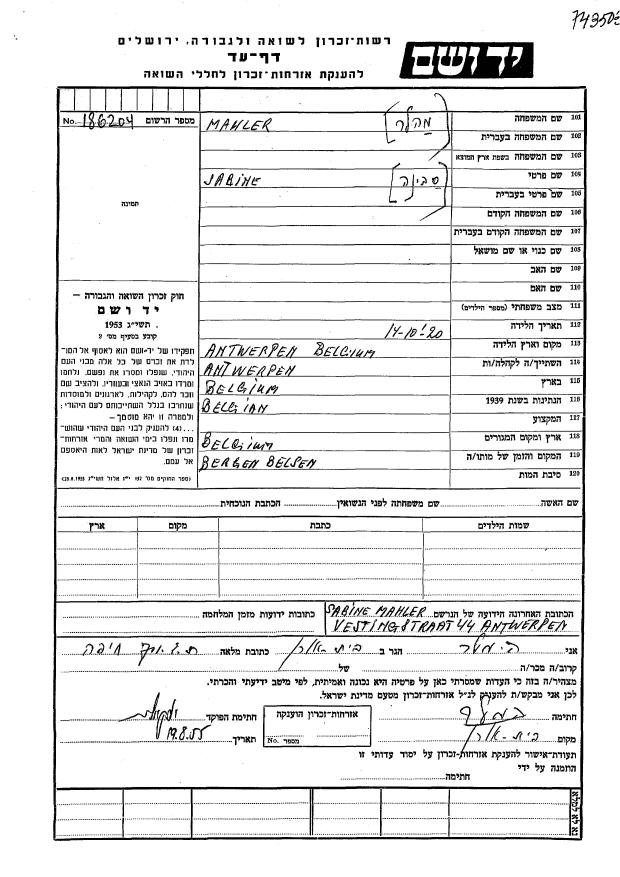 74350
רשות-זכרון לשואה ולגבורה, ירושלים
דף-עד
להענקת אזרחות-זכרון לחללי השואה
יד ושם
No. 186204 מספר הרשום
תמונה
101 שם המשפחה MAHLER [מהלר]
102 שם המשפחה בעברית
103 שם המשפחה בשפת ארץ המוצא
104 שם פרטי SABINE [סבינה]
105 שם פרטי בעברית
106 שם המשפחה הקודם
107 שם המשפחה הקודם בעברית
108 שם כנוי או שם מושאל
109 שם האב
110 שם האם
111 מצב משפחתי (מספר הילדים)
112 תאריך הלידה 14-10-20
113 מקום וארץ הלידה ANTWERPEN BELGIUM
114 השתייך/ה לקהלה/ות ANTWERPEN
115 בארץ BELGIUM
116 הנתינות בשנת 1939 BELGIAN
117 המקצוע
118 ארץ ומקום המגורים BELGIUM
119 המקום והזמן של מותו/ה BERGEN BELSEN
120 סיבת המות
חוק זכרון השואה והגבורה –
יד ושם
תשי"ג 1953
קובע בסעיף מס' 2
תפקידו של יד-ושם הוא לאסוף אל המו-
לדת את זכרם של כל אלה מבני העם
היהודי, שנפלו ומסרו את נפשם, נלחמו
ומרדו באויב הנאצי ובעוזריו, ולהציב שם
וזכר להם, לקהילות, לארגונים ולמוסדות
שנחרבו בגלל השתייכותם לעם היהודי;
ולמטרה זו יהא מוסמך –
...(4) להעניק לבני העם היהודי שהוש-
מדו ונפלו בימי השואה והמרי אזרחות-
זכרון של מדינת ישראל לאות היאספם
אל עמם.
(ספר החוקים מס' 132 י"ז אלול תשי"ג 28.8.1953)
שם האשה. שם משפחתה לפני הנשואין הכתבת הנוכחית
שמות הילדים כתבת מקום ארץ
הכתובת האחרונה הידועה של הנרשם SABINE MAHLER כתובות ידועות מזמן המלחמה
VESTINGSTRAAT 44 ANTWERPEN
אני הגר ב כתובת מלאה חיפה
קרוב/ה מכר/ה של
מצהיר/ה בזה כי העדות שמסרתי כאן על פרטיה היא נכונה ואמיתית, לפי מיטב ידיעתי והכרתי.
לכן אני מבקש/ת להעניק לנ"ל אזרחות-זכרון מטעם מדינת ישראל.
חתימה אזרחות-זכרון הוענקה חתימת הפוקד
מקום מספר No. תאריך 19.8.55
תעודת-אישור להענקת אזרחות-זכרון על יסוד עדותי זו
הוזמנה על ידי
חתימה:
נא לא למלא